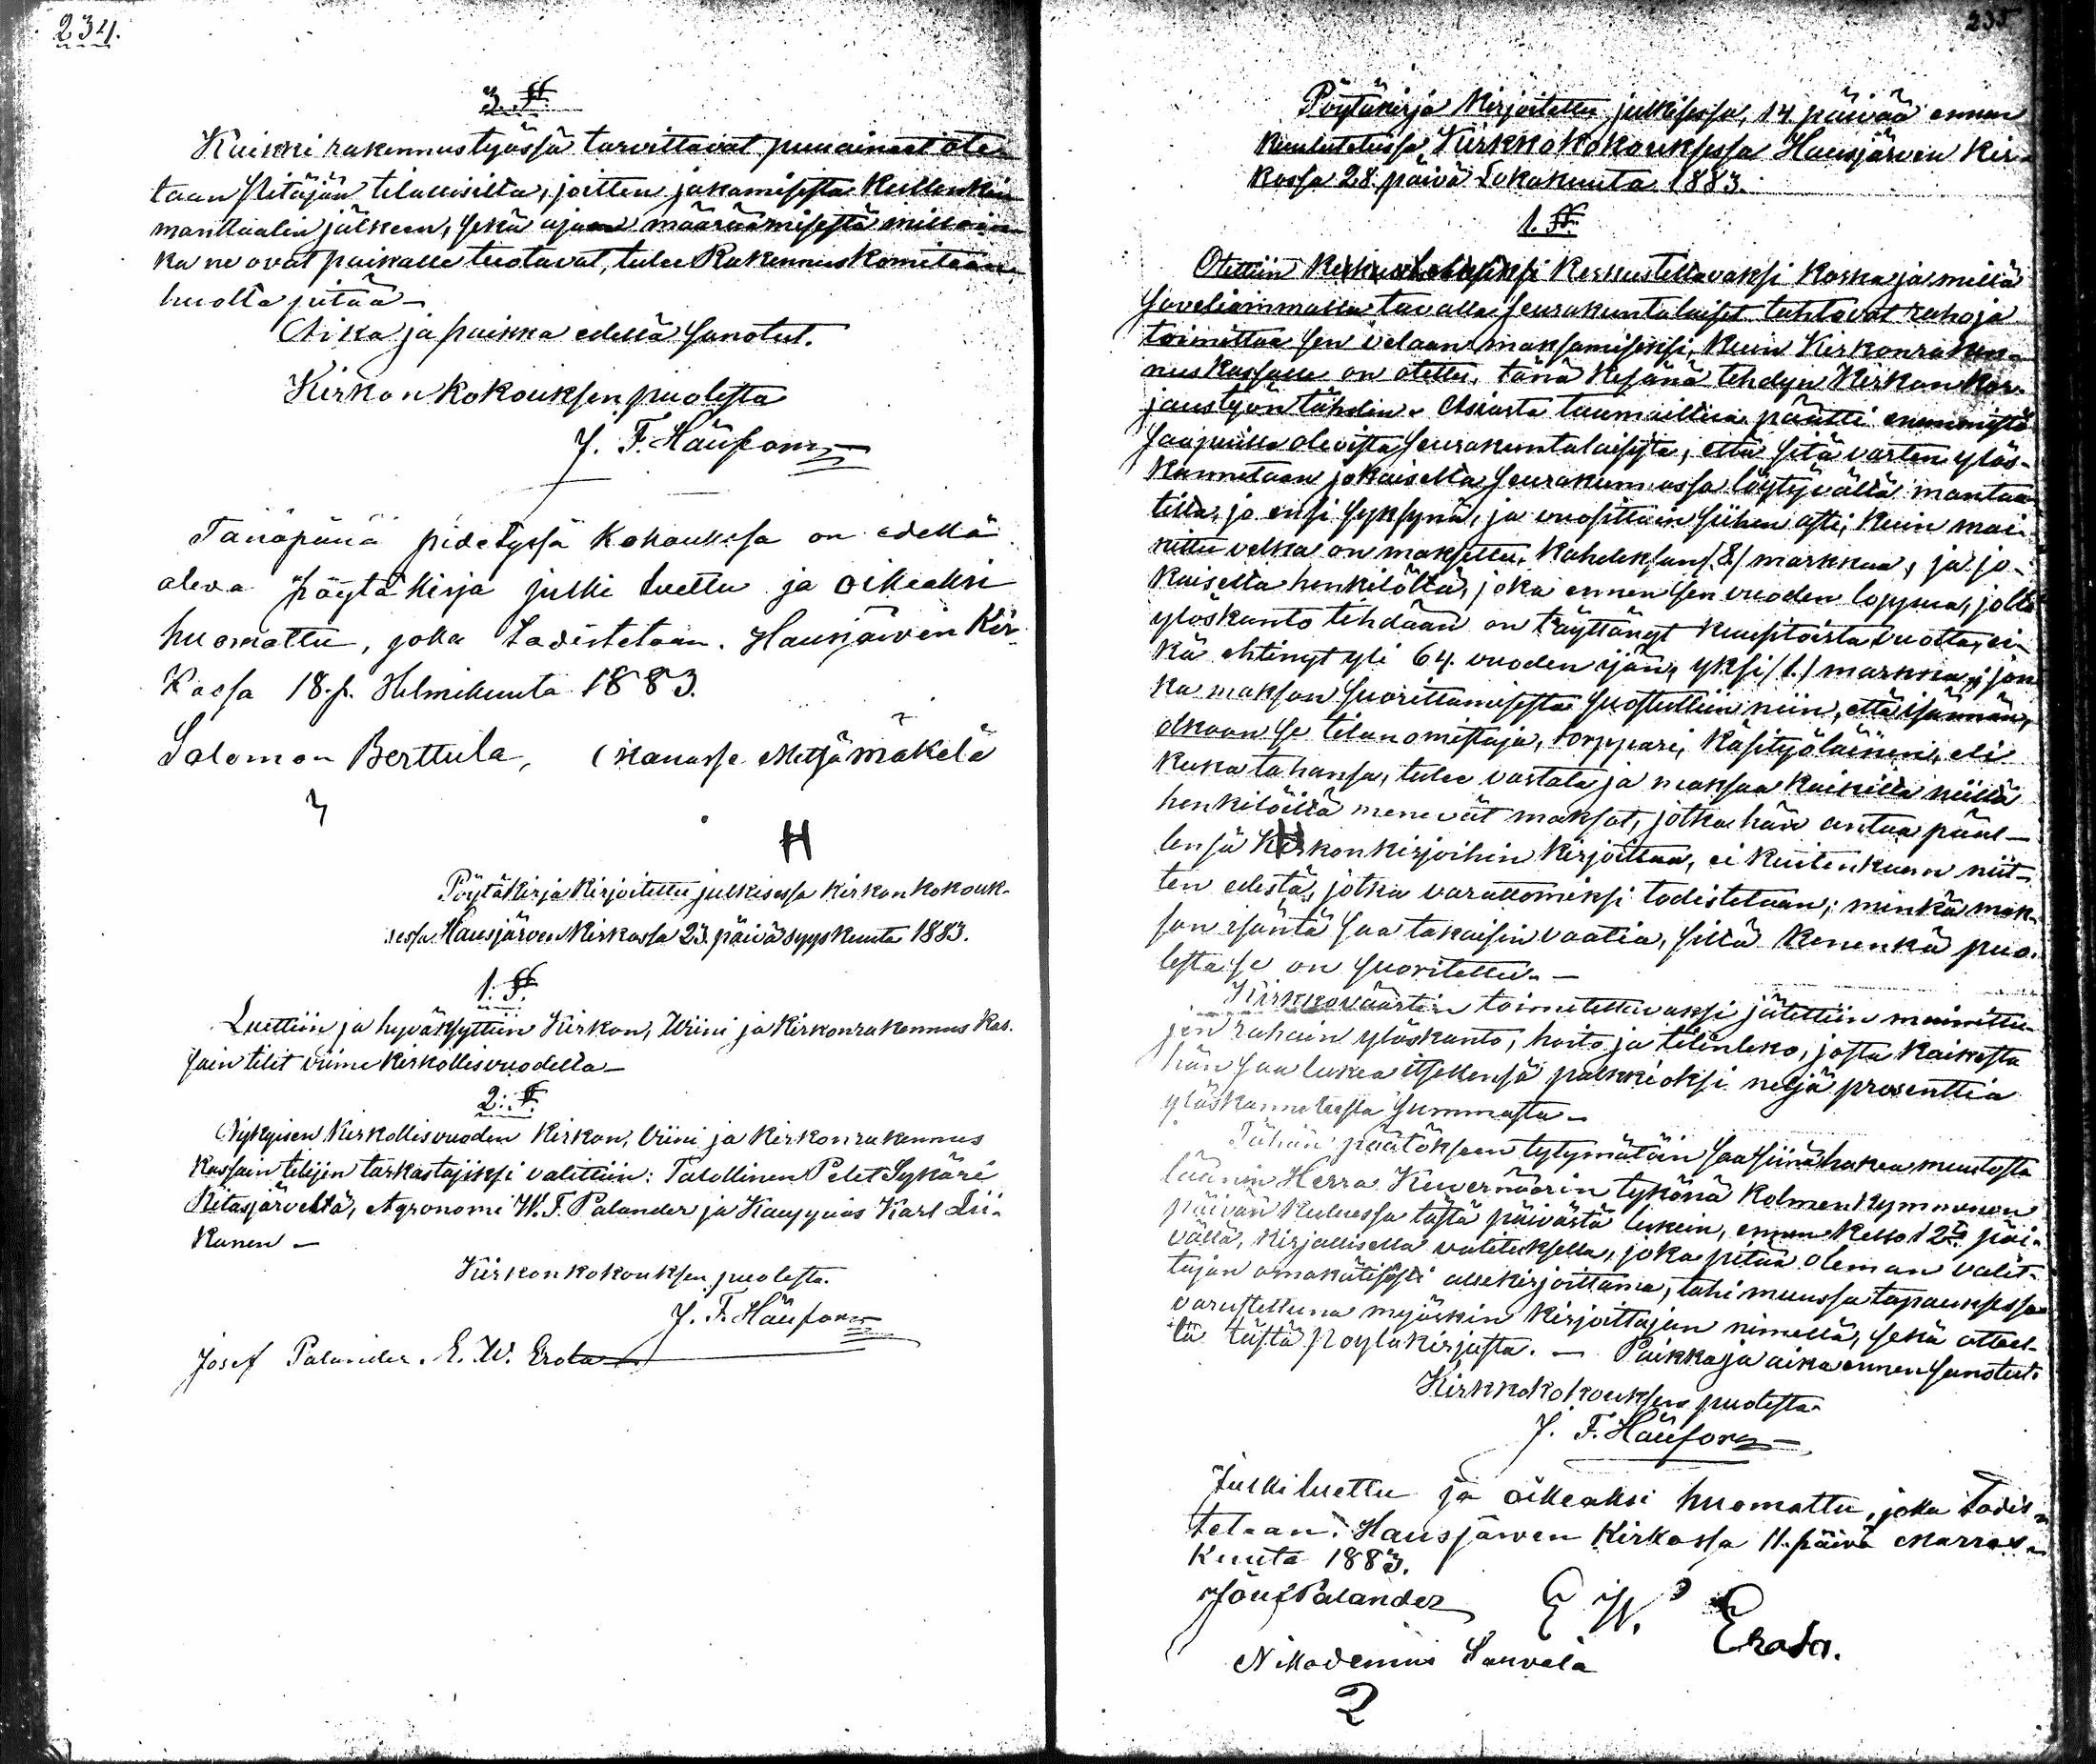 234.
3. §.
Kaikki rakennustyössä tarvittavat puuaineet ote-
taan Pitäjän tilallisilta, joitten jakamisesta kullenkin
manttaalin jälkeen, sekä ajan määräämisestä milloin
ka ne ovat paikalle tuotavat, tulee Rakennuskomitean
huolta pitää —
Aika ja paikka edellä sanotut.
Kirkonkokouksen puolesta
J. F. Häufors
Tänäpänä pidetyssä Kokouksessa on edellä
oleva pöytäkirja julki luettu ja oikeaksi
huomattu, joka todistetaan. Hausjärven Kir-
kossa 18. p. Helmikuuta 1883.
Salomon Berttula, Metsämäkelä
Pöytäkirja kirjoitettu julkisessa kirkonkokouk-
sessa Hausjärven kirkossa 23. päivä syyskuuta 1883.
1. §.
Luettiin ja hyväksyttiin Kirkon, Wiini ja kirkonrakennus kas-
sain tilit viime kirkollisvuodella —
2. §.
Nykyisen kirkollisvuoden kirkon, viini ja kirkonrakennus
kassain tilijen tarkastajiksi valittiin: Talollinen Petet Sykäri
Ritasjärveltä, Agronomi W. F. Palander ja Kauppias Karl Lii-
kanen —
Kirkonkokouksen puolesta.
J. F. Häufors
Josef Palander. E. W. Erola
235
Pöytäkirja kirjoitettu julkisessa, 14 päivää ennen
kuulutetussa Kirkkokokouksessa Hausjärven kir-
kossa 28. päivä Lokakuuta 1883.
1. §.
Otettiin keskusteltavaksi koska ja millä
soveliaimmalla tavalla seurakuntalaiset tahtovat rahoja
toimittaa sen velaan maksamiseksi, kuin Kirkonraken-
nus kassalle on otettu, tänä kesänä tehdyn Kirkon kor-
jaustyön tähden. Asiasta tuumailtua päätti enemmistö
saapuvilla olevista seurakuntalaisista, että sitä varten ylös-
kannetaan jokaiselta seurakunnassa löytyvältä manttaa-
lilta, jo ensi syksynä, ja vuosittain siihen asti, kuin mai-
nittu velka on maksettu, kahdeksan /8/ markkaa, ja jo-
kaiselta henkilöltä, joka ennen sen vuoden loppua, jolla
ylöskanto tehdään on täyttänyt kuusitoista vuotta, ei-
kä ehtinyt yli 64. vuoden ijän, yksi /1./ markka; jon-
ka maksun suorittamisesta suostuttiin niin, että isännän,
olkoon se tilanomistaja, torppari, käsityöläinen, eli
kuka tahansa, tulee vastata ja maksaa kaikilta niiltä
henkilöiltä menevät maksot, jotka hän antaa pääl-
lensä Kirkonkirjoihin kirjoittaa, ei kuitenkaan niit-
ten edestä, jotka varattomiksi todistetaan; minkä mak-
son isäntä saa takaisin vaatia, siltä kenenkä puo-
lesta se on suoritettu. —
Kirkkoväärtin toimitettavaksi jätettiin mainittu-
jen rahain ylöskanto, hoito ja tilinteko, josta kaikesta
hän saa lukea itsellensä palkkioksi neljä prosenttia
ylöskannetusta summasta. —
Tähän päätökseen tytymätöin saa siinä hakea muutosta
läänin Herra Kuvernöörin tykönä kolmenkymmenen
päivän kuluessa tästä päivästä lukein, ennen kello 12ta päi-
vällä, kirjallisella valituksella, joka pitää oleman valit-
tajan omakätisesti allekirjoittama, tahi muussa tapauksessa
varustettuna myöskin kirjoittajan nimellä, sekä otteel-
la tästä pöytäkirjasta. — Paikka ja aika ennen sanotut.
Kirkkokokouksen puolesta
J. F. Häufors
Julkiluettu ja oikeaksi huomattu, joka todis-
tetaan. Hausjärven Kirkossa 11. päivä Marras-
kuuta 1883.
Josef Palander E. W. Erola.
Nikodemus Sauvala
2